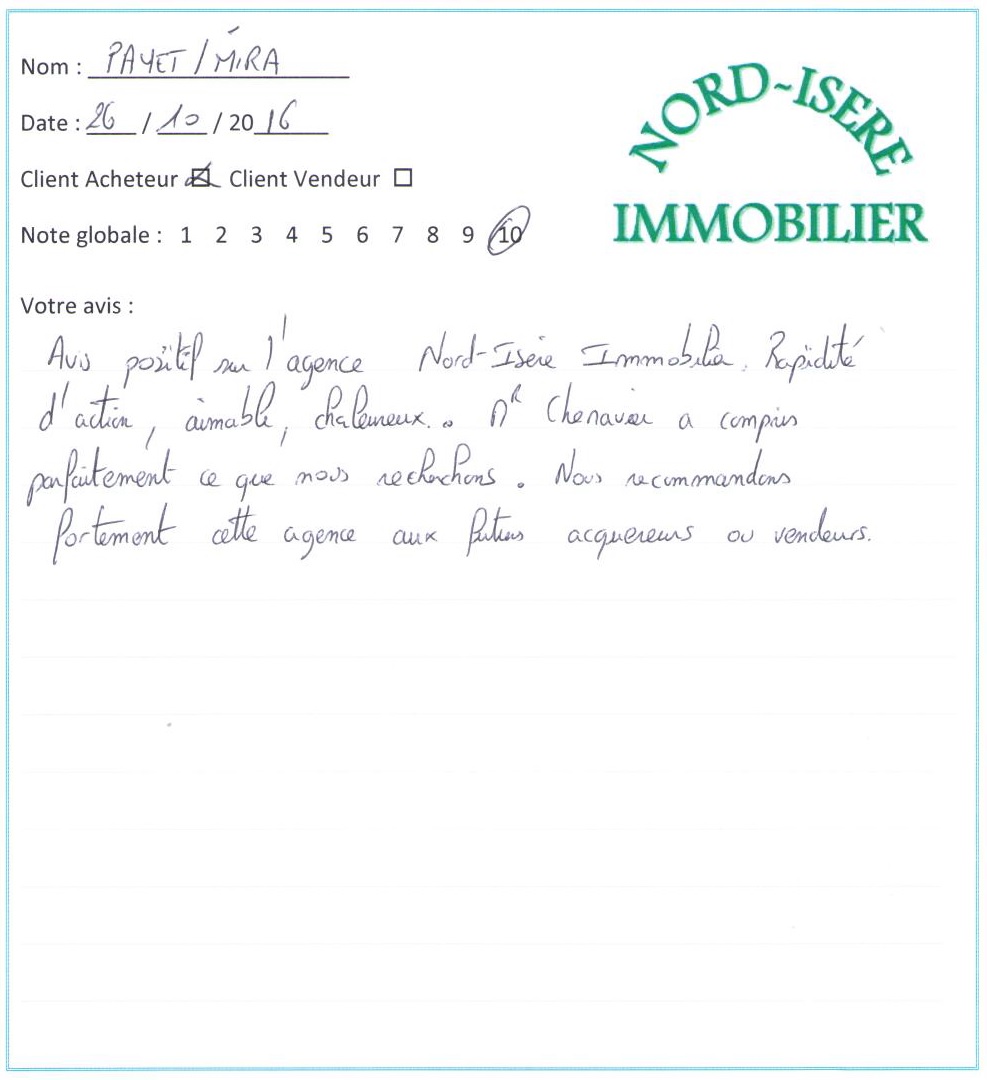 Nom : PAYET / MIRA
Date : 26 / 10 / 2016
Client Acheteur ☒ Client Vendeur ☐
Note globale : 1 2 3 4 5 6 7 8 9 10
NORD~ISERE
IMMOBILIER
Votre avis :
Avis positif sur l'agence Nord-Isère Immobilier. Rapidité
d'action, aimable, chaleureux. Mr Chenavier a compris
parfaitement ce que nous recherchons. Nous recommandons
fortement cette agence aux futurs acquereurs ou vendeurs.